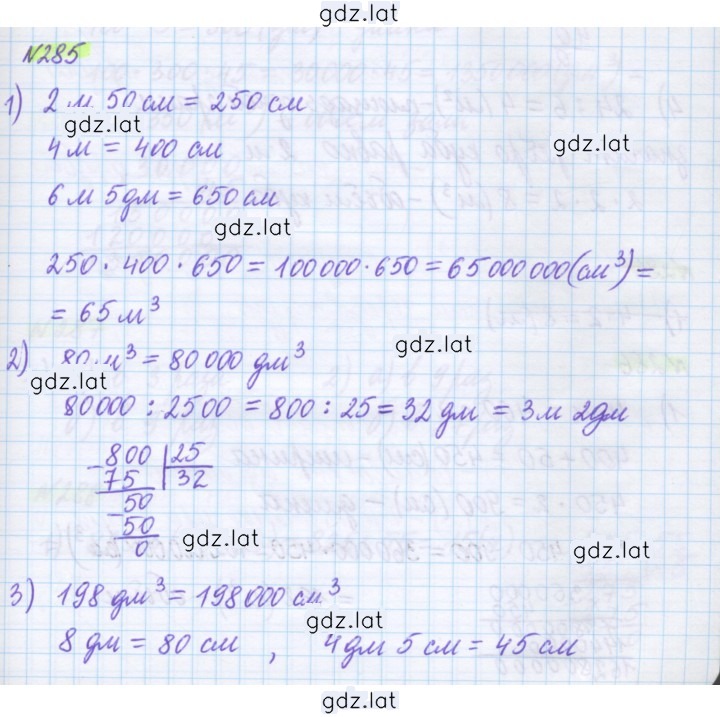 gdz.lat
№285
1) 2 м 50 см = 250 см
gdz.lat
4 м = 400 см
gdz.lat
6 м 5 дм = 650 см
gdz.lat
250 · 400 · 650 = 100 000 · 650 = 65 000 000 (см³) =
= 65 м³
gdz.lat
2) 80 м³ = 80 000 дм³
gdz.lat
80 000 : 2500 = 800 : 25 = 32 дм = 3 м 2 дм
- 800 | 25
75 | 32
- 50
50
0
gdz.lat
gdz.lat
3) 198 дм³ = 198 000 см³
gdz.lat
8 дм = 80 см , 4 дм 5 см = 45 см
gdz.lat